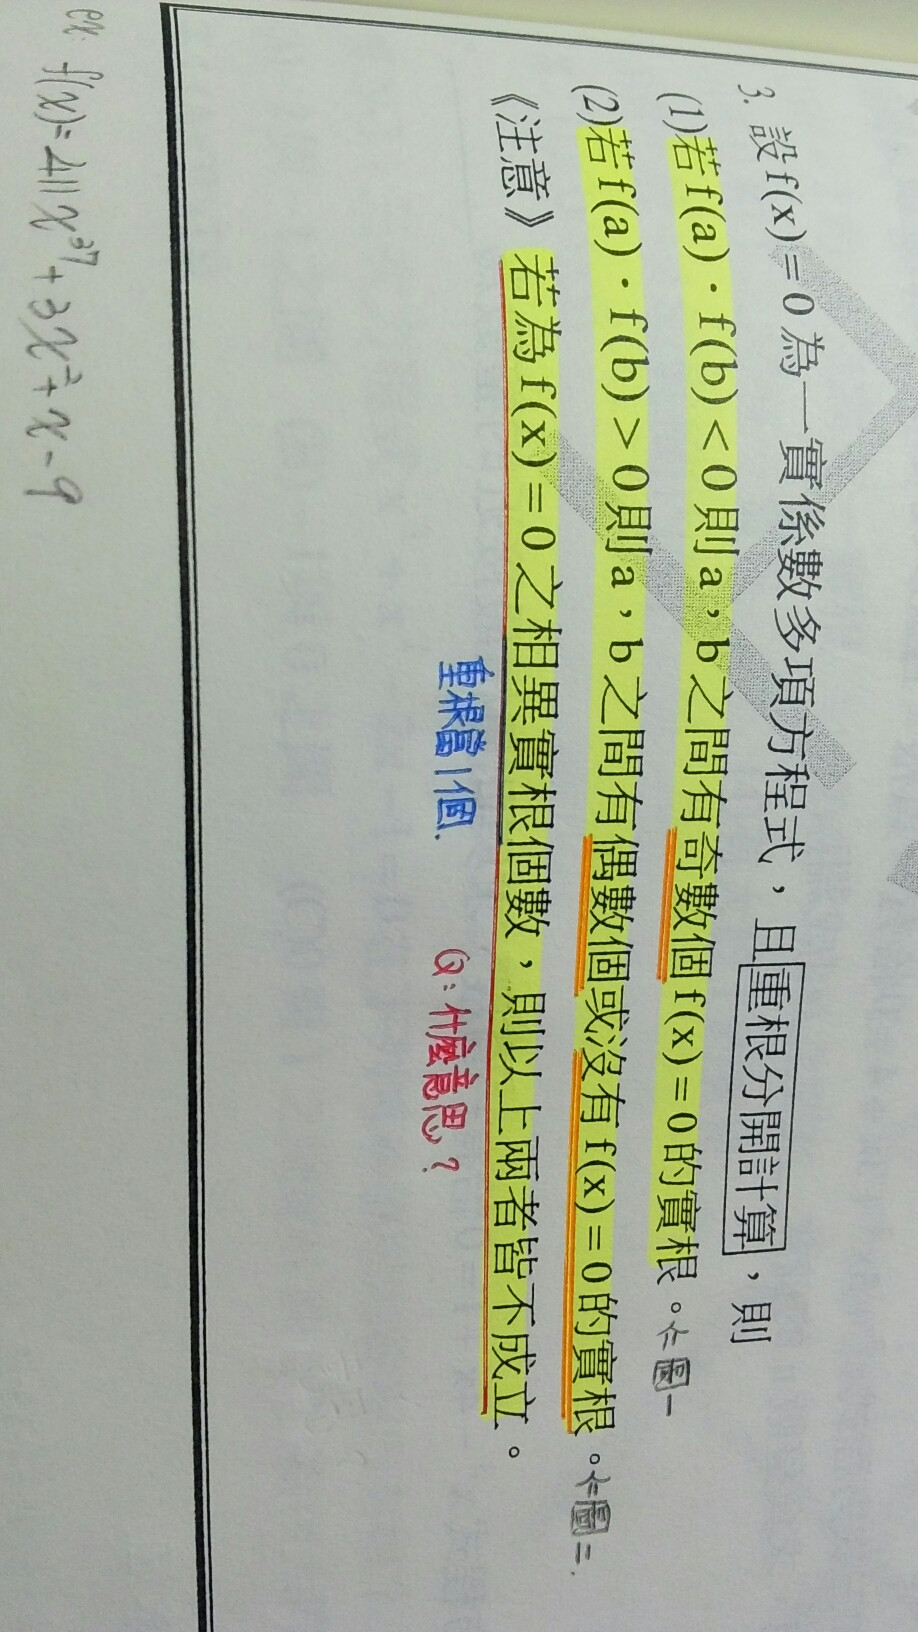 3. 設 f(x) = 0 為一實係數多項方程式，且重根分開計算，則
(1)若 f(a)．f(b) < 0 則 a，b 之間有奇數個 f(x) = 0 的實根。⇐圖一
(2)若 f(a)．f(b) > 0 則 a，b 之間有偶數個或沒有 f(x) = 0 的實根。⇐圖二.
《注意》若為 f(x) = 0 之相異實根個數，則以上兩者皆不成立。
重根當1個.
Q：什麼意思？
ex: f(x)=411x³⁷+3x²+x-9